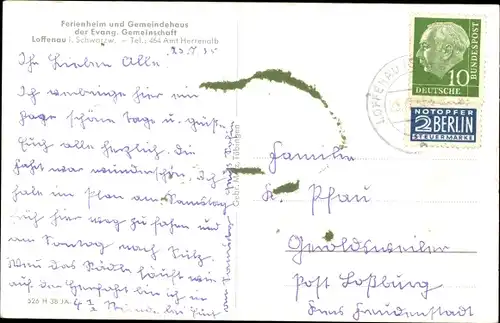 Ferienheim und Gemeindehaus
der Evang. Gemeinschaft
Loffenau i. Schwarzw. – Tel.: 464 Amt Herrenalb
Ihr Lieben Alle.
Ich verbringe hier ein
paar schöne Tage u. grüße
Euch alle herzlich. Die
Fahrt war wunderschön. Ich
habe im Plan am Samstag
früh hier weg zu fahren und
am Sonntag nach
Wenn das Rädle läuft wie
auf der Herfahrt bin ich in
4 ½ Stunden bei Euch
526 H 38 JA
Familie
Pfau
Geroldsweiler
Post Loßburg
Kreis Freudenstadt
LOFFENAU
10
DEUTSCHE BUNDESPOST
NOTOPFER
2 BERLIN
STEUERMARKE